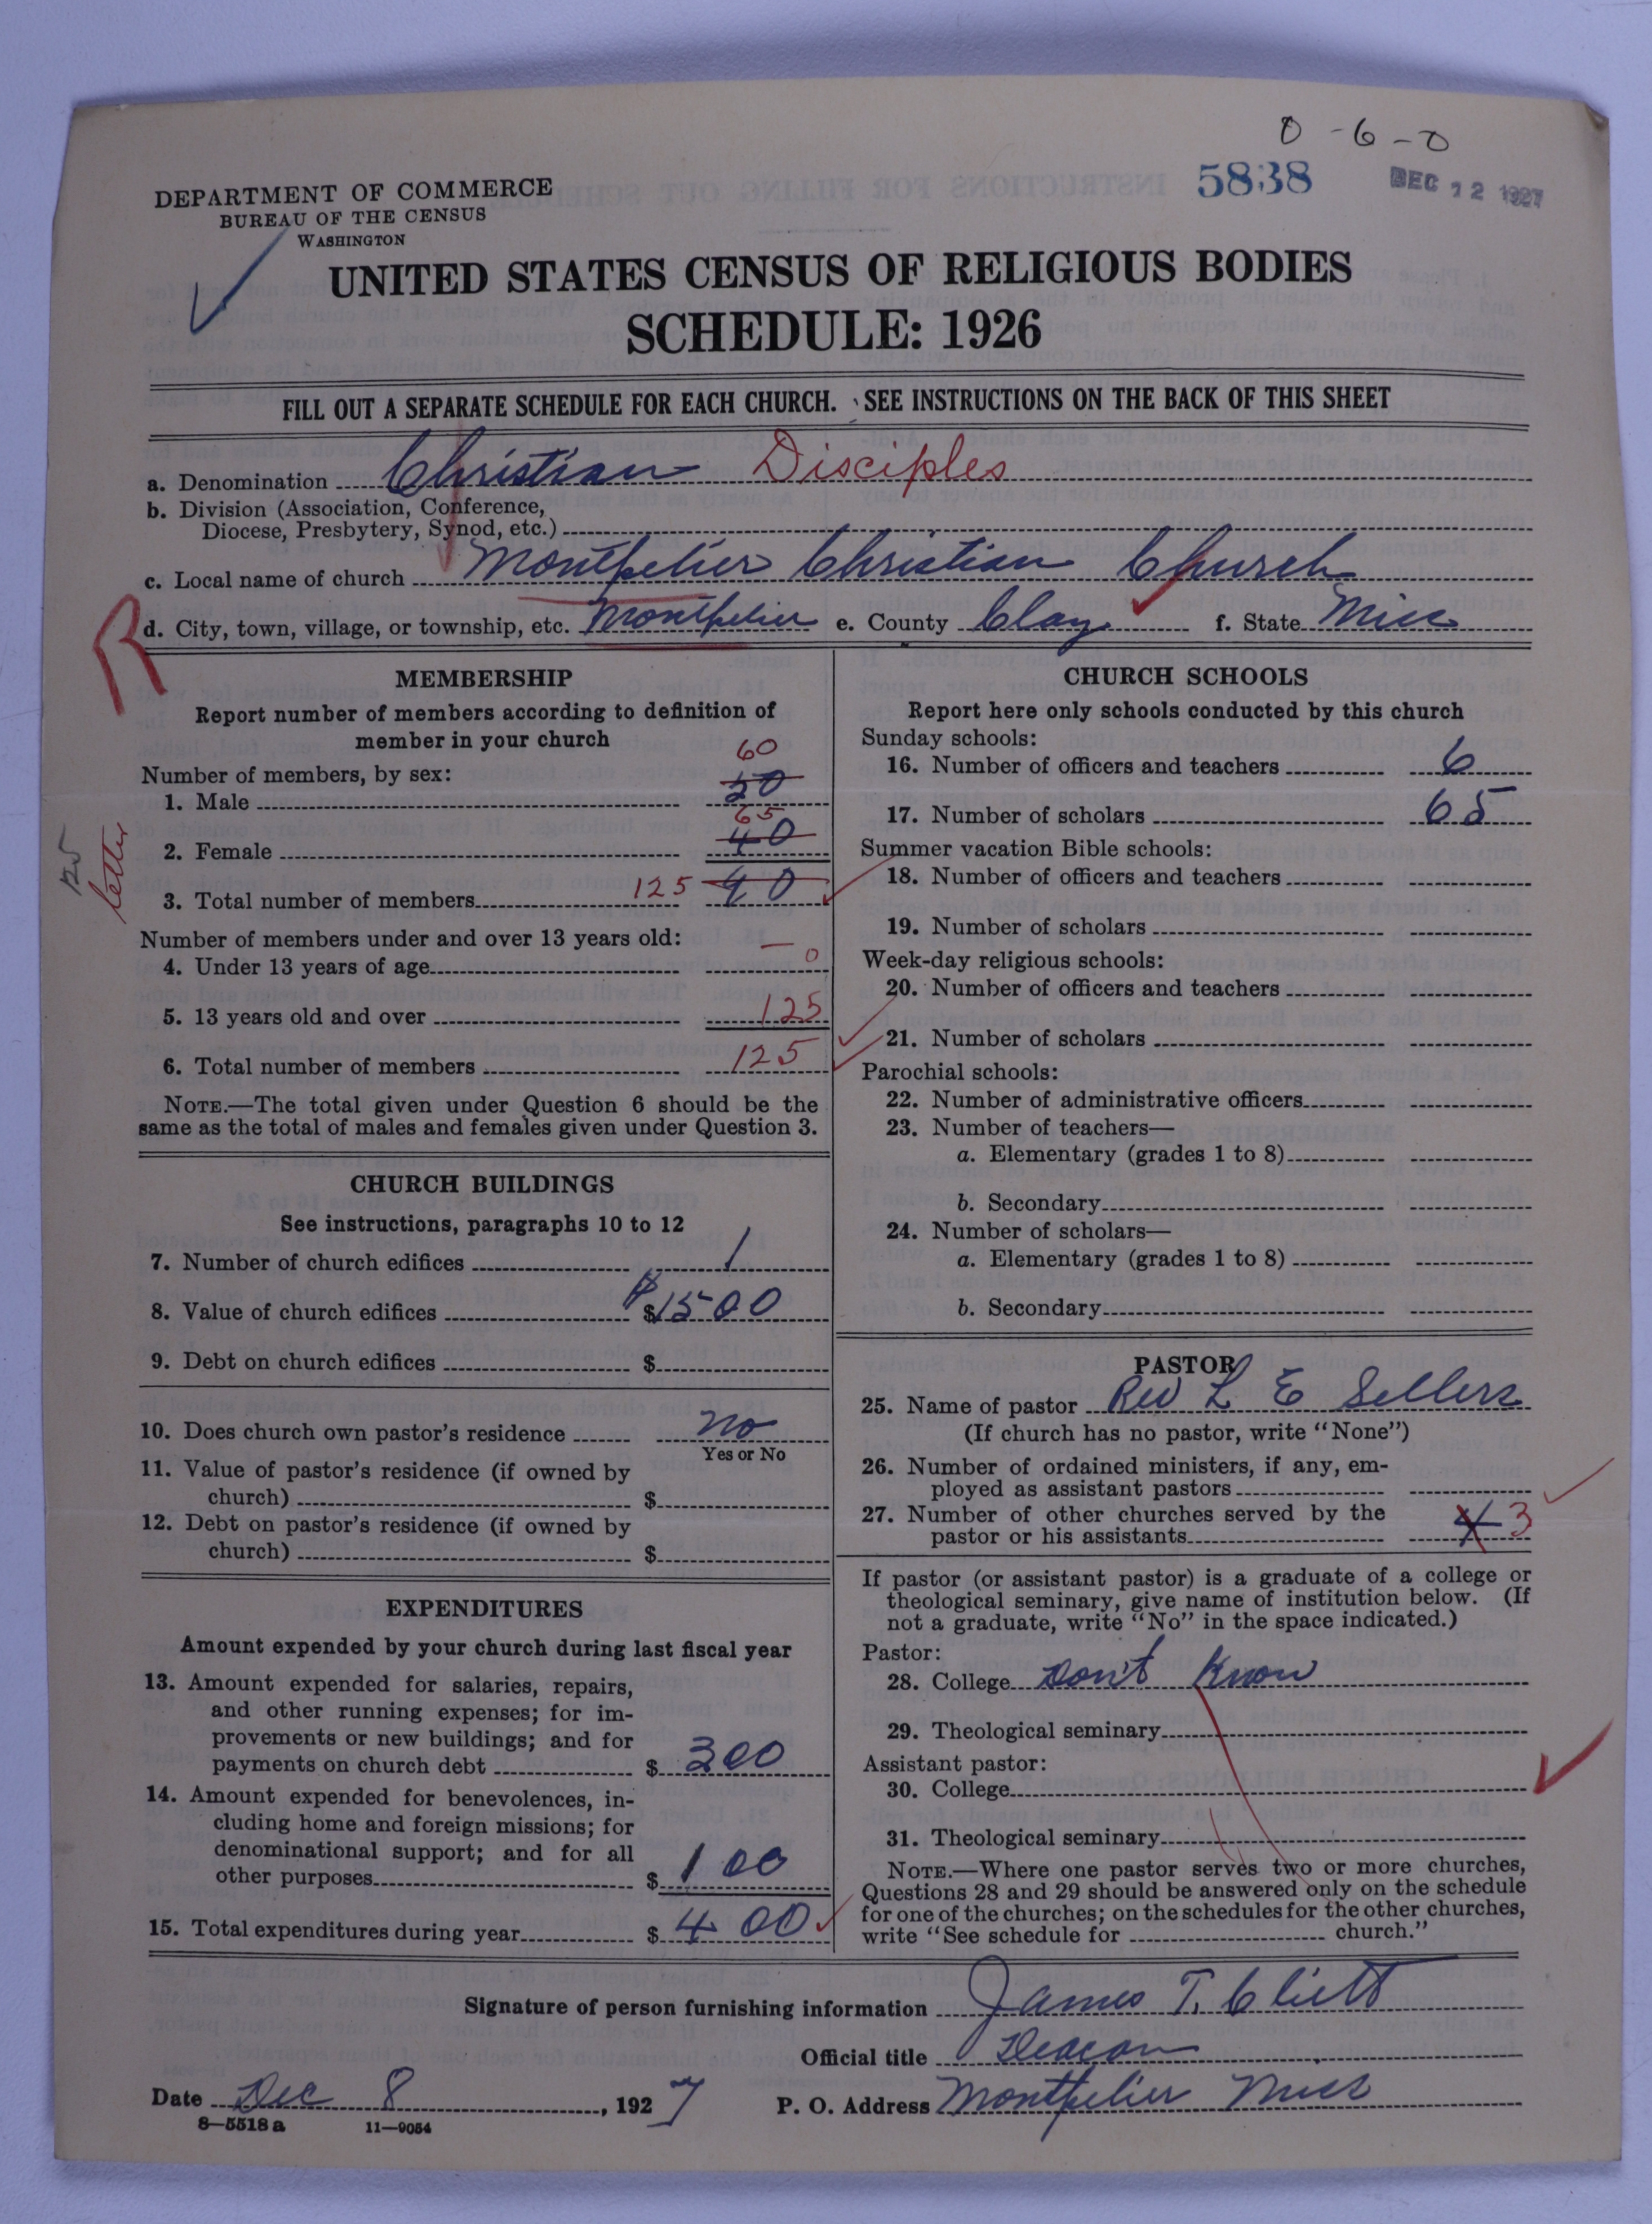 0 - 6 - 0
5838
DEC 12 1927
DEPARTMENT OF COMMERCE
BUREAU OF THE CENSUS
WASHINGTON
UNITED STATES CENSUS OF RELIGIOUS BODIES
SCHEDULE: 1926
FILL OUT A SEPARATE SCHEDULE FOR EACH CHURCH. SEE INSTRUCTIONS ON THE BACK OF THIS SHEET
a. Denomination Christian Disciples
b. Division (Association, Conference,
Diocese, Presbytery, Synod, etc.)
c. Local name of church Montpelier Christian Church
d. City, town, village, or township, etc. Montpelier e. County Clay f. State Miss
R
125
letter
MEMBERSHIP
Report number of members according to definition of
member in your church
Number of members, by sex:
60
1. Male
65
2. Female 40
3. Total number of members 125 90
Number of members under and over 13 years old:
4. Under 13 years of age — 0
5. 13 years old and over 125
6. Total number of members 125
NOTE.—The total given under Question 6 should be the
same as the total of males and females given under Question 3.
CHURCH BUILDINGS
See instructions, paragraphs 10 to 12
7. Number of church edifices 1
8. Value of church edifices $ $1500
9. Debt on church edifices $
10. Does church own pastor's residence no
Yes or No
11. Value of pastor's residence (if owned by
church) $
12. Debt on pastor's residence (if owned by
church) $
EXPENDITURES
Amount expended by your church during last fiscal year
13. Amount expended for salaries, repairs,
and other running expenses; for im-
provements or new buildings; and for
payments on church debt $ 300
14. Amount expended for benevolences, in-
cluding home and foreign missions; for
denominational support; and for all
other purposes $ 100
15. Total expenditures during year $ 400
CHURCH SCHOOLS
Report here only schools conducted by this church
Sunday schools:
16. Number of officers and teachers 6
17. Number of scholars 65
Summer vacation Bible schools:
18. Number of officers and teachers
19. Number of scholars
Week-day religious schools:
20. Number of officers and teachers
21. Number of scholars
Parochial schools:
22. Number of administrative officers
23. Number of teachers—
a. Elementary (grades 1 to 8)
b. Secondary
24. Number of scholars—
a. Elementary (grades 1 to 8)
b. Secondary
PASTOR
25. Name of pastor Rev L E Sellers
(If church has no pastor, write "None")
26. Number of ordained ministers, if any, em-
ployed as assistant pastors
27. Number of other churches served by the
pastor or his assistants 4 3
If pastor (or assistant pastor) is a graduate of a college or
theological seminary, give name of institution below. (If
not a graduate, write "No" in the space indicated.)
Pastor:
28. College Don't Know
29. Theological seminary
Assistant pastor:
30. College
31. Theological seminary
NOTE.—Where one pastor serves two or more churches,
Questions 28 and 29 should be answered only on the schedule
for one of the churches; on the schedules for the other churches,
write "See schedule for church."
Signature of person furnishing information James T. Cliett
Official title Deacon
Date Dec 8, 1927 P. O. Address Montpelier Miss
8—5518 a 11—9054